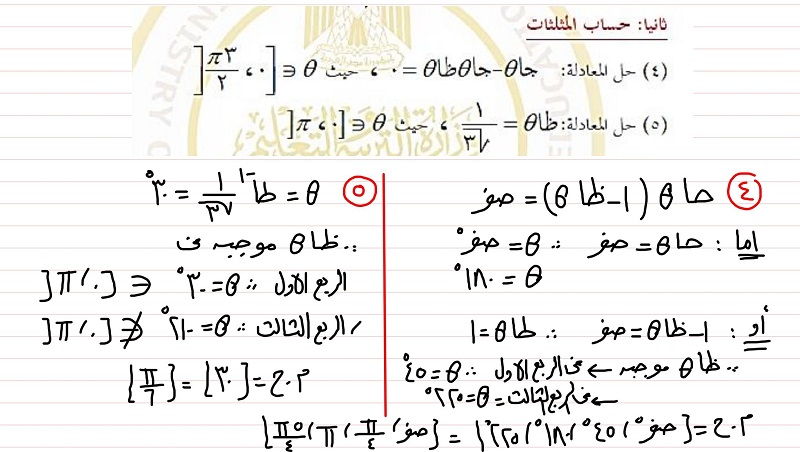 ثانيا: حساب المثلثات
(٤) حل المعادلة: جاθ-جاθظاθ = ٠ ، حيث θ ∈ [٠ ، ٣π/٢[
(٥) حل المعادلة: ظاθ = ١/√٣ ، حيث θ ∈ [٠ ، π[
٤ حاθ (١-ظاθ) = صفر
إما : حاθ = صفر ∴ θ = صفر°
θ = ١٨٠°
أو : ١-ظاθ = صفر ∴ طاθ = ١
∵ ظاθ موجبه ← فى الربع الاول ∴ θ = ٤٥°
← فى الربع الثالث = θ = ٢٢٥°
م.ح = {صفر° ، ٤٥° ، ١٨٠° ، ٢٢٥°} = {صفر ، π/٤ ، π ، ٥π/٤}
٥ θ = طا⁻¹ ١/√٣ = ٣٠°
∵ ظاθ موجبه فى
الربع الاول ∴ θ = ٣٠° ∈ [٠ ، π[
، الربع الثالث ∴ θ = ٢١٠° ∉ [٠ ، π[
م.ح = {٣٠°} = {π/٦}